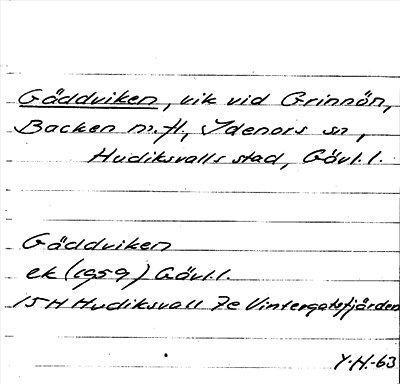 Gäddviken, vik vid Grinnön,
Backen m.fl., Idenors sn,
Hudiksvalls stad, Gävl.l.
Gäddviken
ek (1959) Gävl.l.
15H Hudiksvall 7e Vintergatsfjärden
Y.H.-63